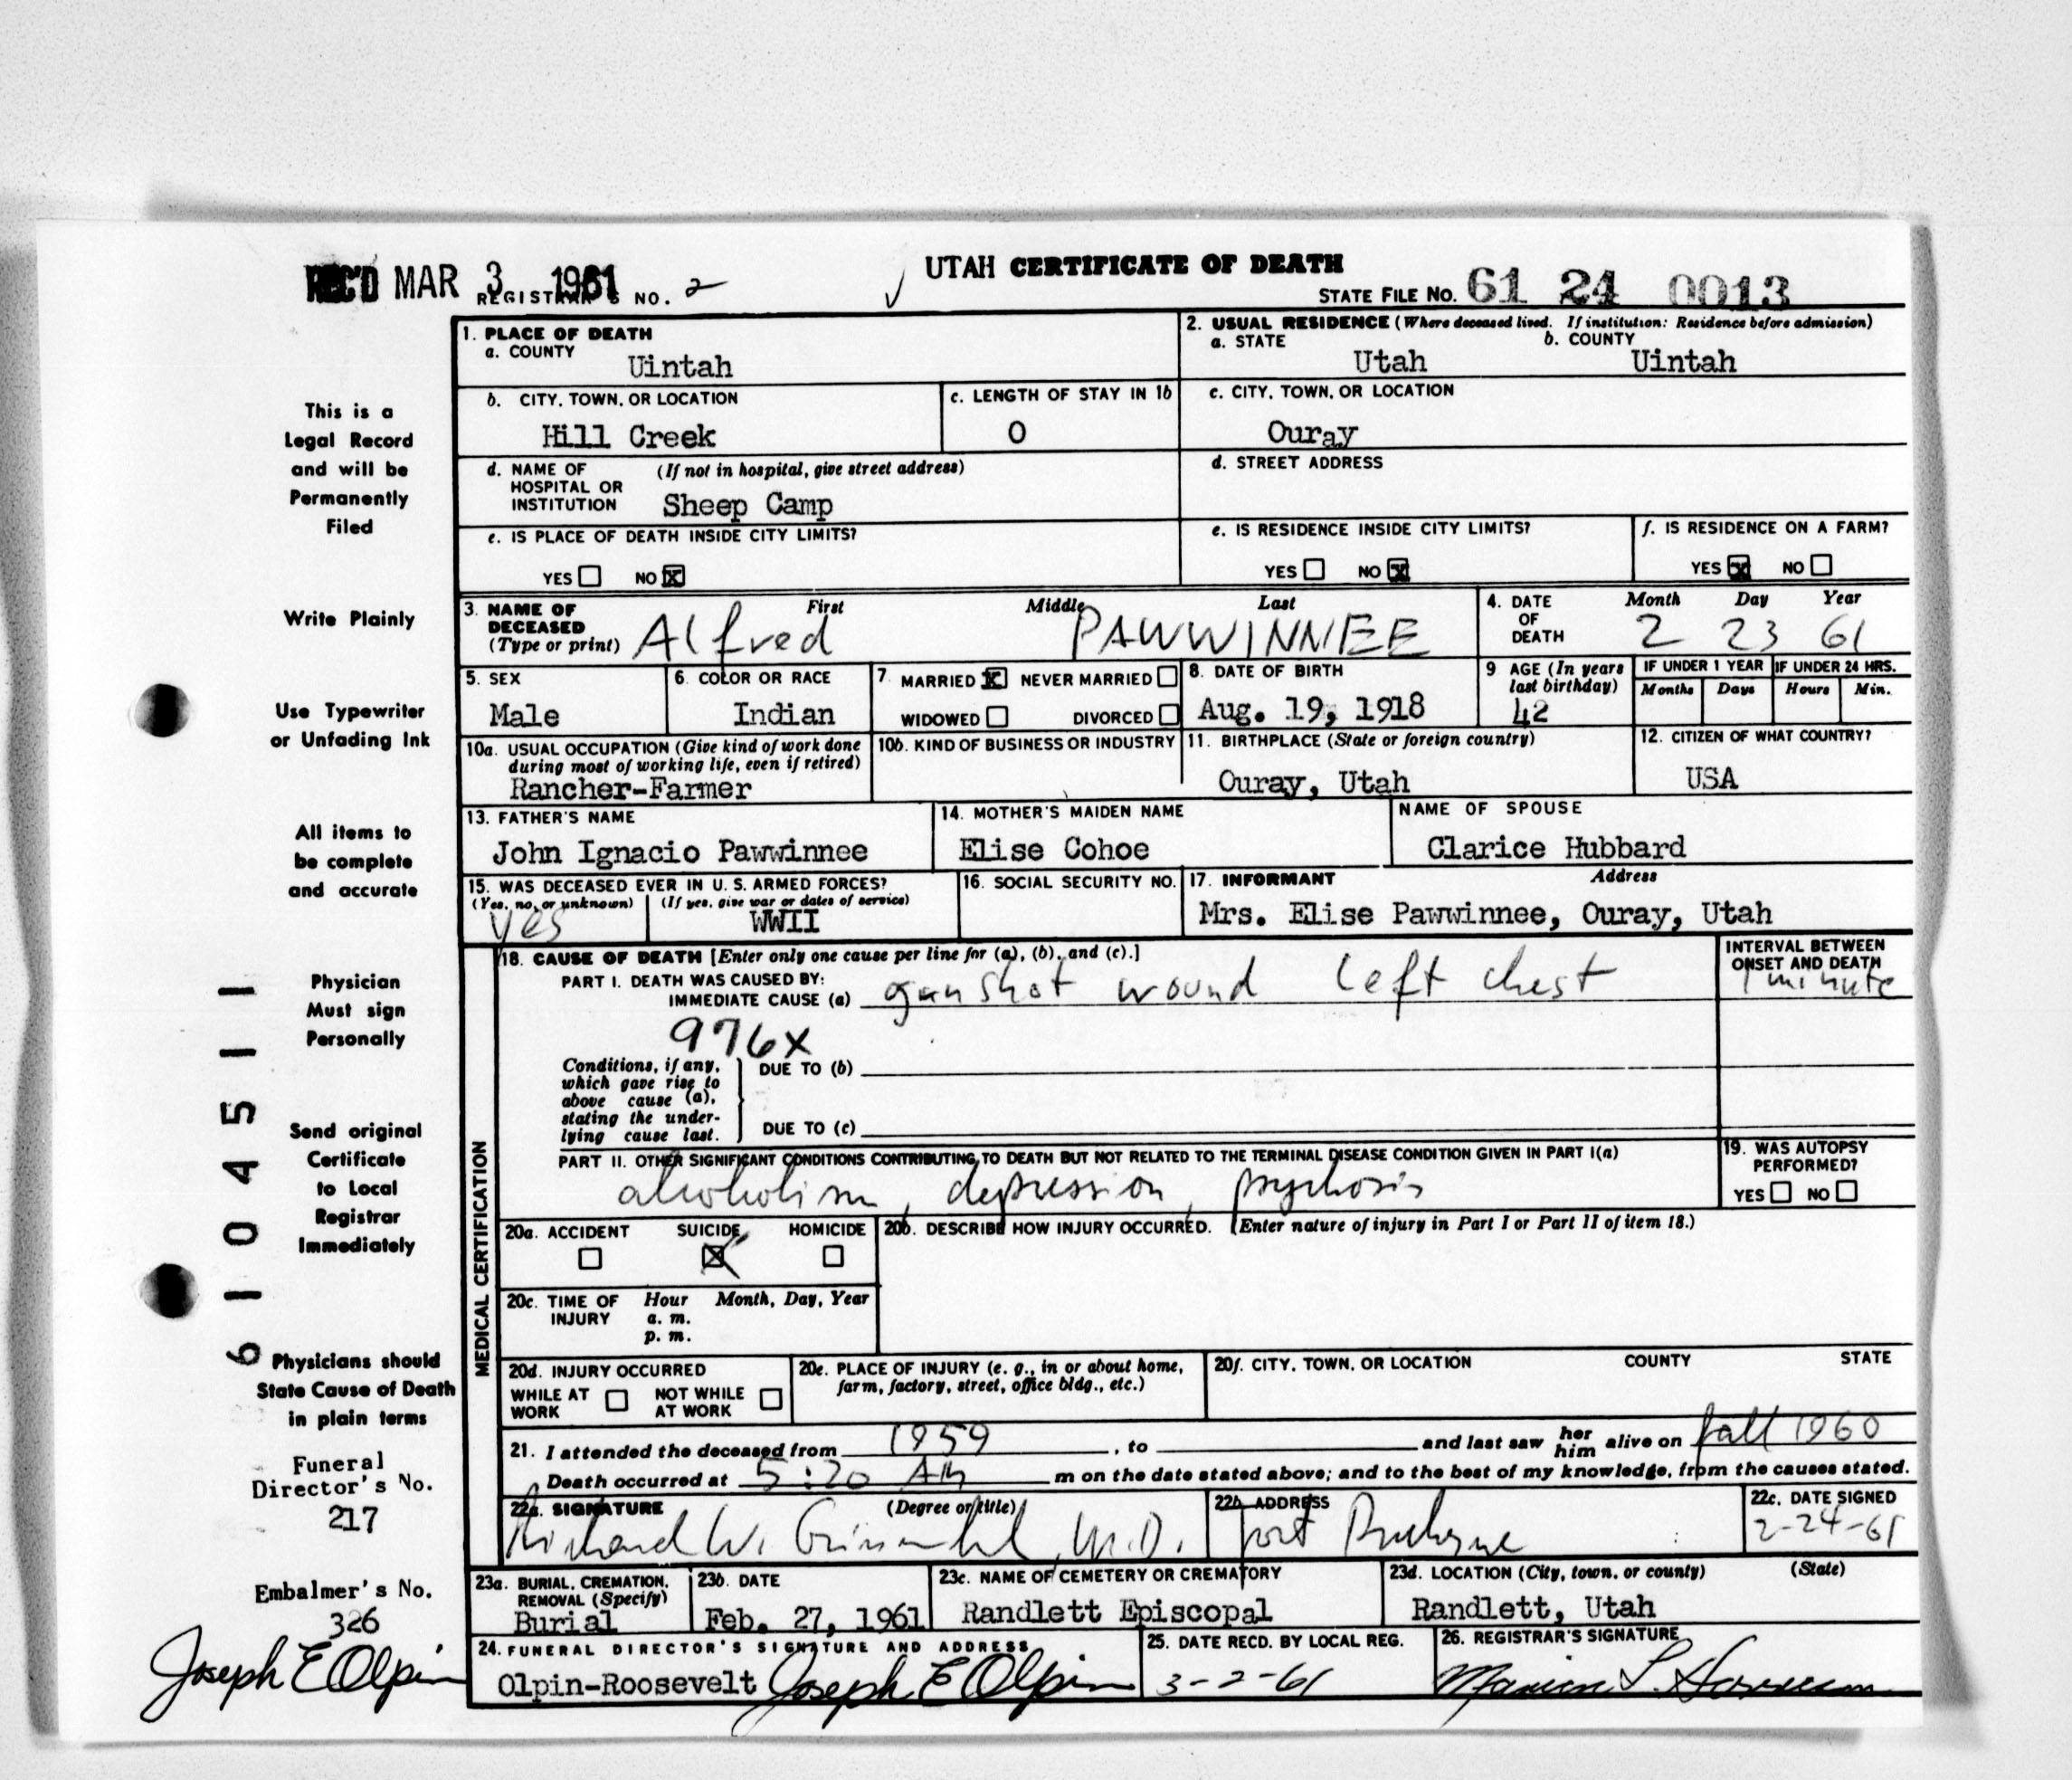 REC'D MAR 3 1961
REGISTRAR'S NO. 2
UTAH CERTIFICATE OF DEATH
STATE FILE NO. 61 24 0013
This is a
Legal Record
and will be
Permanently
Filed
Write Plainly
Use Typewriter
or Unfading Ink
All items to
be complete
and accurate
Physician
Must sign
Personally
Send original
Certificate
to Local
Registrar
Immediately
Physicians should
State Cause of Death
in plain terms
Funeral
Director's No.
217
Embalmer's No.
326
Joseph E Olpin
61045 11
1. PLACE OF DEATH
a. COUNTY
Uintah
2. USUAL RESIDENCE (Where deceased lived. If institution: Residence before admission)
a. STATE b. COUNTY
Utah Uintah
b. CITY, TOWN, OR LOCATION
Hill Creek
c. LENGTH OF STAY IN 1b
0
c. CITY, TOWN, OR LOCATION
Ouray
d. NAME OF (If not in hospital, give street address)
HOSPITAL OR
INSTITUTION Sheep Camp
d. STREET ADDRESS
e. IS PLACE OF DEATH INSIDE CITY LIMITS?
YES NO X
e. IS RESIDENCE INSIDE CITY LIMITS?
YES NO X
f. IS RESIDENCE ON A FARM?
YES X NO
3. NAME OF First Middle Last
DECEASED
(Type or print) Alfred PAWWINNEE
4. DATE Month Day Year
OF
DEATH 2 23 61
5. SEX
Male
6. COLOR OR RACE
Indian
7. MARRIED X NEVER MARRIED
WIDOWED DIVORCED
8. DATE OF BIRTH
Aug. 19, 1918
9 AGE (In years
last birthday)
42
IF UNDER 1 YEAR IF UNDER 24 HRS.
Months Days Hours Min.
10a. USUAL OCCUPATION (Give kind of work done
during most of working life, even if retired)
Rancher-Farmer
10b. KIND OF BUSINESS OR INDUSTRY
11. BIRTHPLACE (State or foreign country)
Ouray, Utah
12. CITIZEN OF WHAT COUNTRY?
USA
13. FATHER'S NAME
John Ignacio Pawwinnee
14. MOTHER'S MAIDEN NAME
Elise Cohoe
NAME OF SPOUSE
Clarice Hubbard
15. WAS DECEASED EVER IN U. S. ARMED FORCES?
(Yes, no, or unknown) (If yes, give war or dates of service)
yes WWII
16. SOCIAL SECURITY NO.
17. INFORMANT Address
Mrs. Elise Pawwinnee, Ouray, Utah
MEDICAL CERTIFICATION
18. CAUSE OF DEATH [Enter only one cause per line for (a), (b), and (c).]
PART I. DEATH WAS CAUSED BY:
IMMEDIATE CAUSE (a) gunshot wound left chest
INTERVAL BETWEEN
ONSET AND DEATH
1 minute
976X
Conditions, if any,
which gave rise to
above cause (a),
stating the under-
lying cause last.
DUE TO (b)
DUE TO (c)
PART II. OTHER SIGNIFICANT CONDITIONS CONTRIBUTING TO DEATH BUT NOT RELATED TO THE TERMINAL DISEASE CONDITION GIVEN IN PART I(a)
alcoholism, depression, psychosis
19. WAS AUTOPSY
PERFORMED?
YES NO
20a. ACCIDENT SUICIDE HOMICIDE
X
20b. DESCRIBE HOW INJURY OCCURRED. (Enter nature of injury in Part I or Part II of item 18.)
20c. TIME OF Hour Month, Day, Year
INJURY a. m.
p. m.
20d. INJURY OCCURRED
WHILE AT NOT WHILE
WORK AT WORK
20e. PLACE OF INJURY (e. g., in or about home,
farm, factory, street, office bldg., etc.)
20f. CITY, TOWN, OR LOCATION COUNTY STATE
21. I attended the deceased from 1959, to and last saw her him alive on fall 1960
Death occurred at 5:20 AM m on the date stated above; and to the best of my knowledge, from the causes stated.
22a. SIGNATURE (Degree or title)
Richard W. M.D.
22b. ADDRESS
Fort Duchesne
22c. DATE SIGNED
2-24-61
23a. BURIAL, CREMATION,
REMOVAL (Specify)
Burial
23b. DATE
Feb. 27, 1961
23c. NAME OF CEMETERY OR CREMATORY
Randlett Episcopal
23d. LOCATION (City, town, or county) (State)
Randlett, Utah
24. FUNERAL DIRECTOR'S SIGNATURE AND ADDRESS
Olpin-Roosevelt Joseph E Olpin
25. DATE RECD. BY LOCAL REG.
3-2-61
26. REGISTRAR'S SIGNATURE